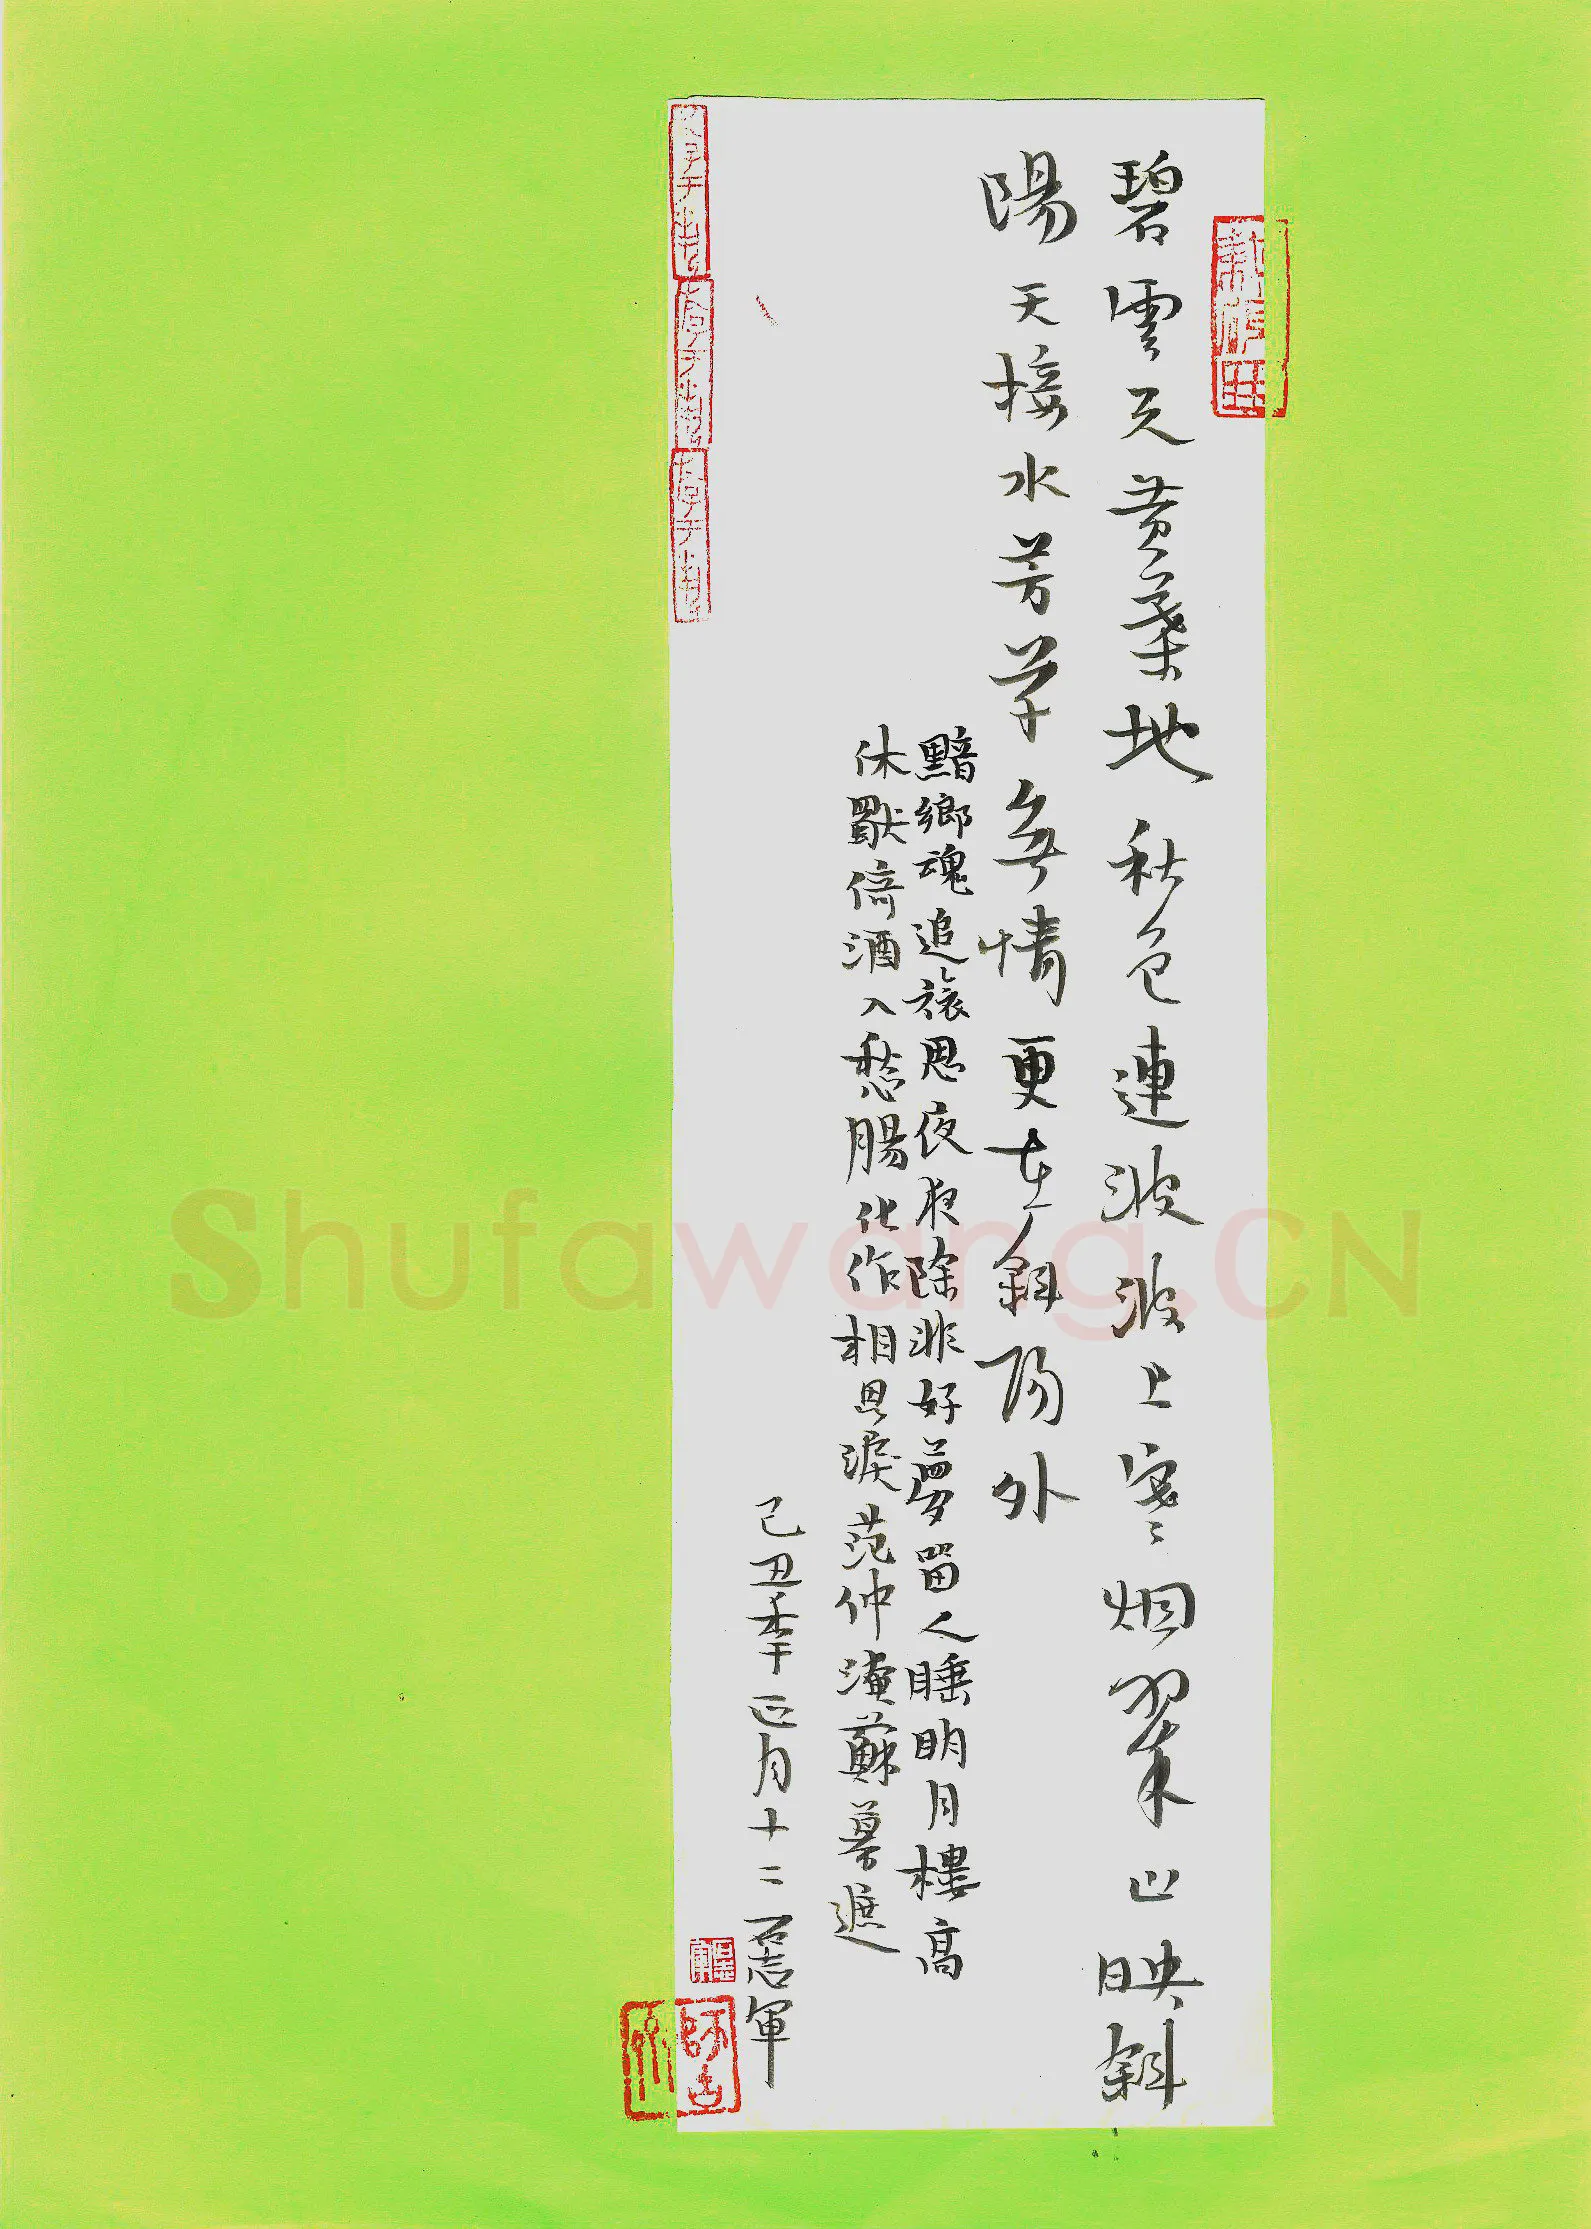 碧雲天黄葉地秋色連波波上寒烟翠山映斜
陽天接水芳草無情更在斜陽外
黯鄉魂追旅思夜夜除非好夢留人睡明月樓高
休獨倚酒入愁腸化作相思淚范仲淹蘇幕遮
己丑季正月十二
Shufawang.CN